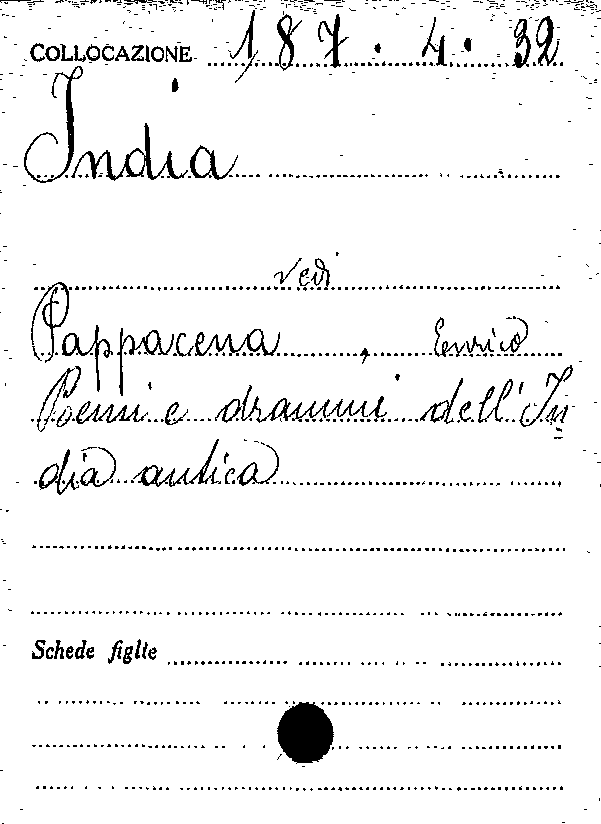 COLLOCAZIONE 187.4.32
India
vedi
Pappacena, Enrico
Poemi e drammi dell'In
dia antica
Schede figlie